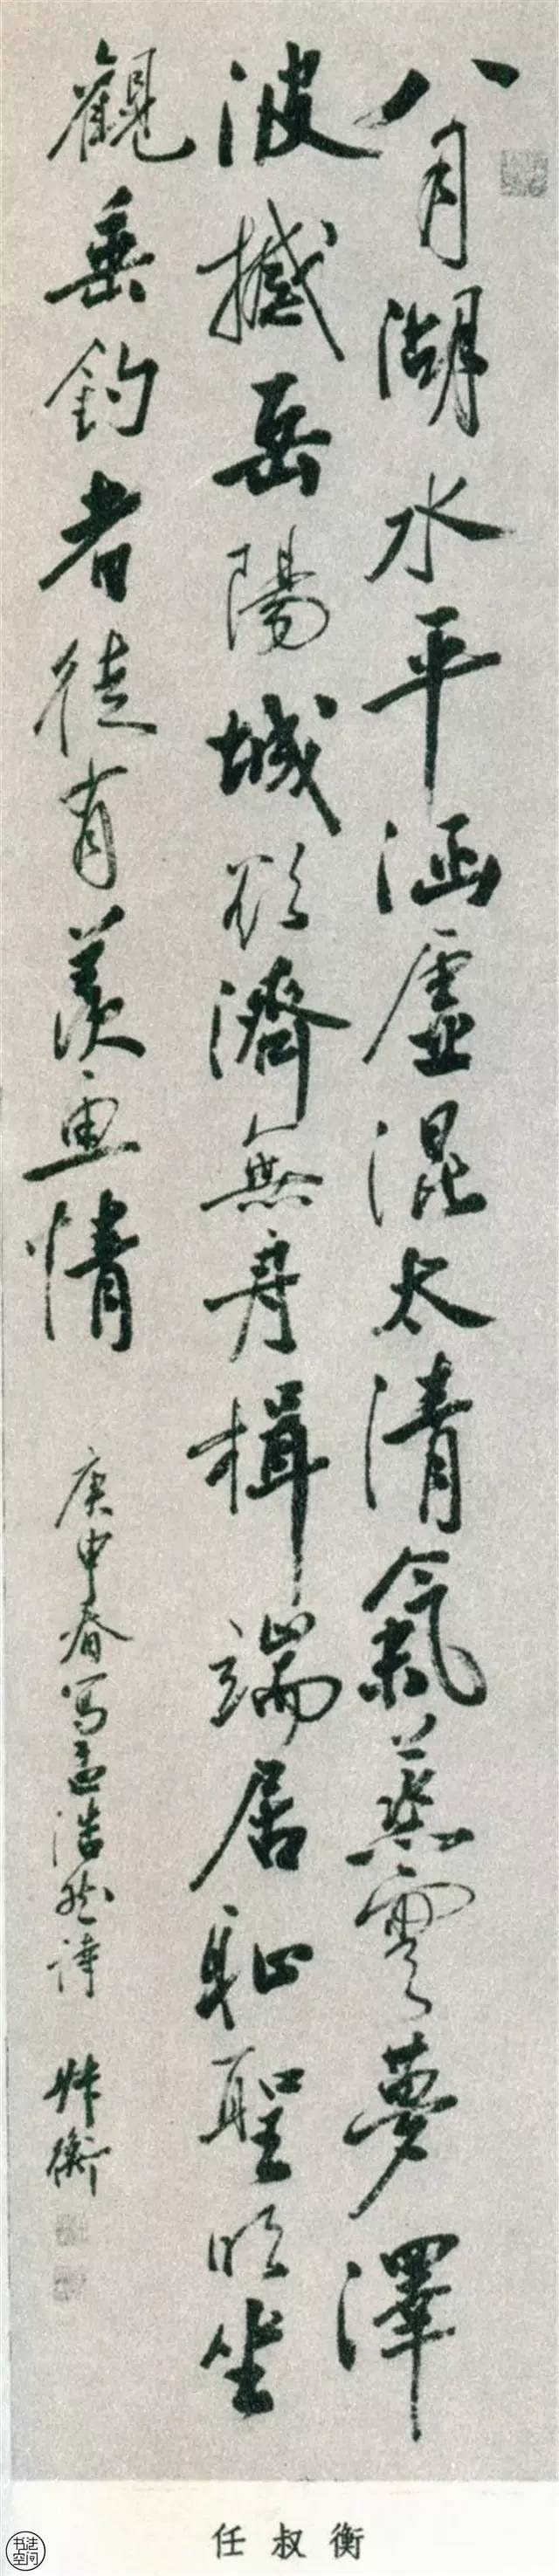 八月湖水平涵虛混太清氣蒸雲夢澤
波撼岳陽城欲濟無舟楫端居恥聖明坐
觀垂釣者徒有羨魚情
庚申春写孟浩然诗 叔衡
任叔衡
书法空间